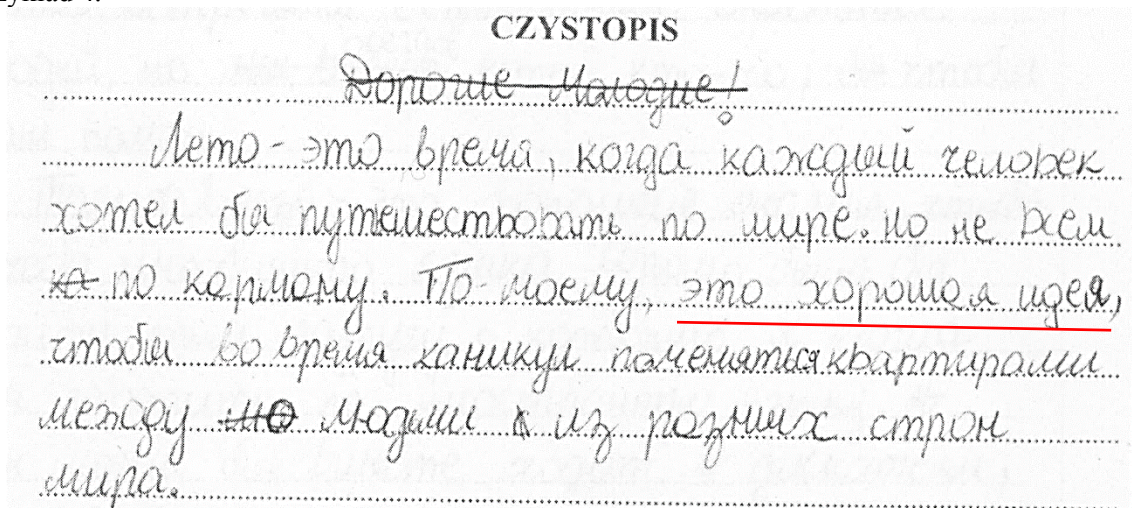 CZYSTOPIS
Дорогие Молодые!
Лето - это время, когда каждый человек
хотел бы путешествовать по мире. но не всем
по карману. По моему, это хорошая идея,
чтобы во время каникул поменяться квартирами
между людьми из разных стран
мира.